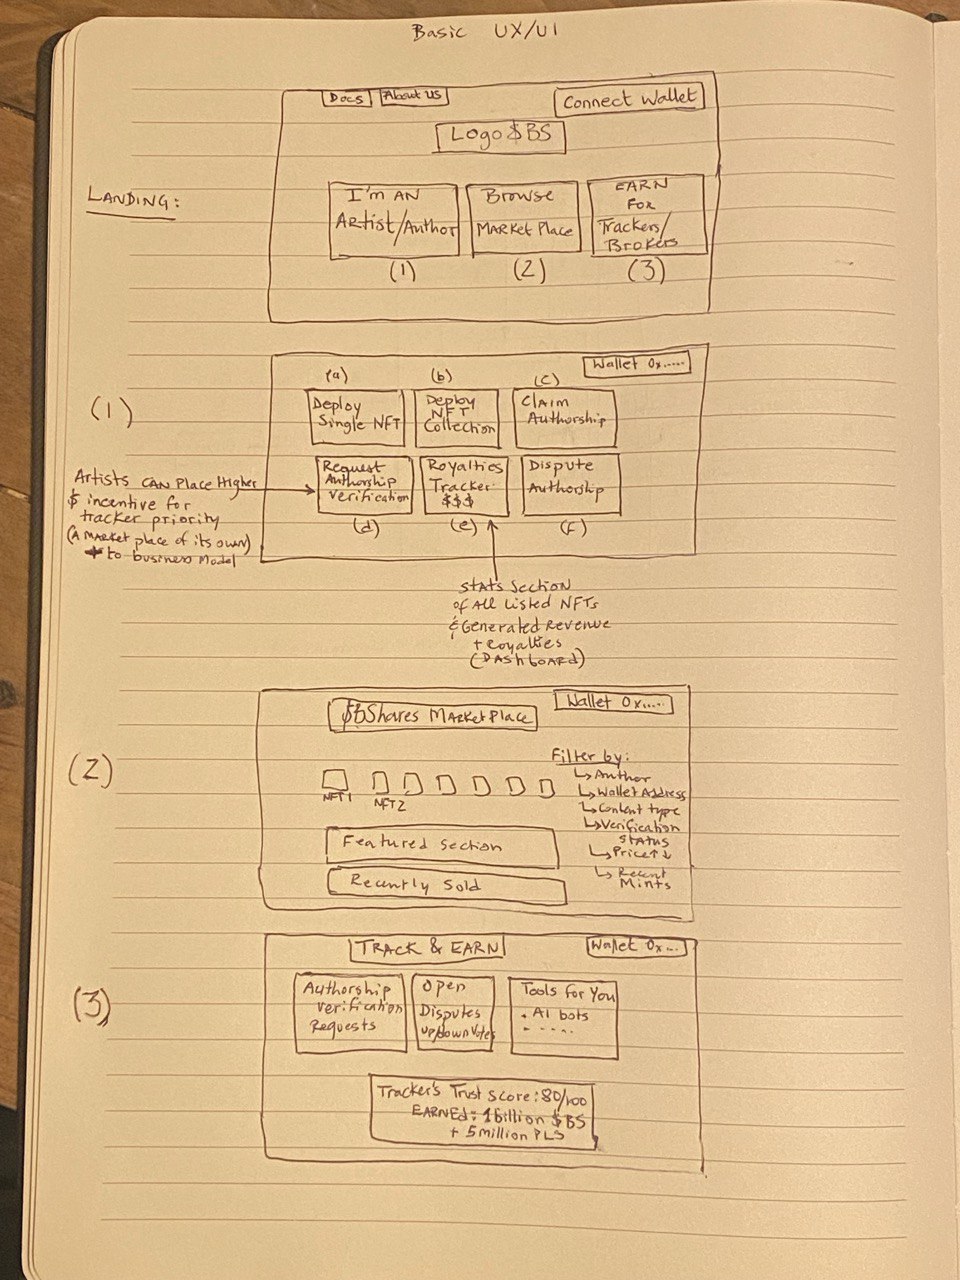 Basic UX/UI
Docs
About US
Connect Wallet
Logo $BS
LANDING:
I'm AN
Artist/Author
(1)
Browse
Market Place
(2)
EARN
FOR
Trackers/
Brokers
(3)
(1)
Wallet 0x.....
(a)
Deploy
Single NFT
(b)
Deploy
NFT
Collection
(c)
Claim
Authorship
Request
Authorship
Verification
(d)
Royalties
Tracker
$$$
(e)
Dispute
Authorship
(f)
Artists CAN Place Higher
$ incentive for
tracker priority
(A market place of its own)
+ to business model
Stats Section
of All Listed NFTs
& Generated Revenue
+ royalties
(DAShboard)
(2)
$bShares MarketPlace
Wallet 0x.....
NFT1
NFT2
Filter by:
Author
Wallet Address
Content type
Verification
status
Price↑↓
Recent
Mints
Featured section
Recently Sold
(3)
TRACK & EARN
Wallet 0x...
Authorship
Verification
Requests
Open
Disputes
up/down Votes
Tools for You
• AI bots
• - - - - -
Tracker's Trust score: 80/100
EARNEd: 1 billion $BS
+ 5 million PLS